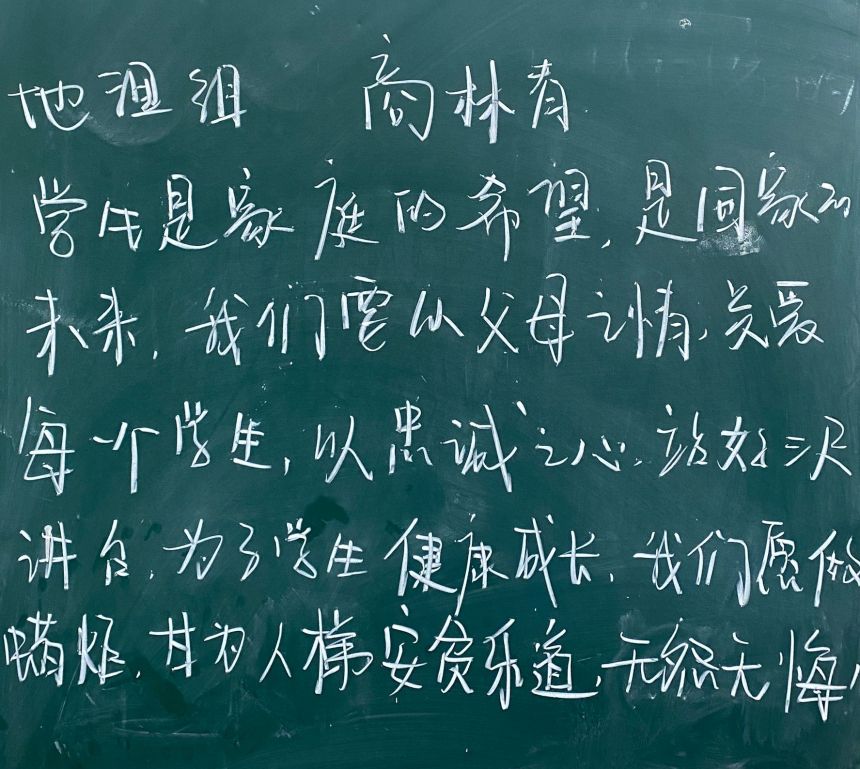 地理组 商林青
学生是家庭的希望,是国家的
未来,我们要从父母之情,关爱
每个学生,以忠诚之心,站好三尺
讲台,为了学生健康成长,我们愿做
蜡炬,甘为人梯安贫乐道,无怨无悔!